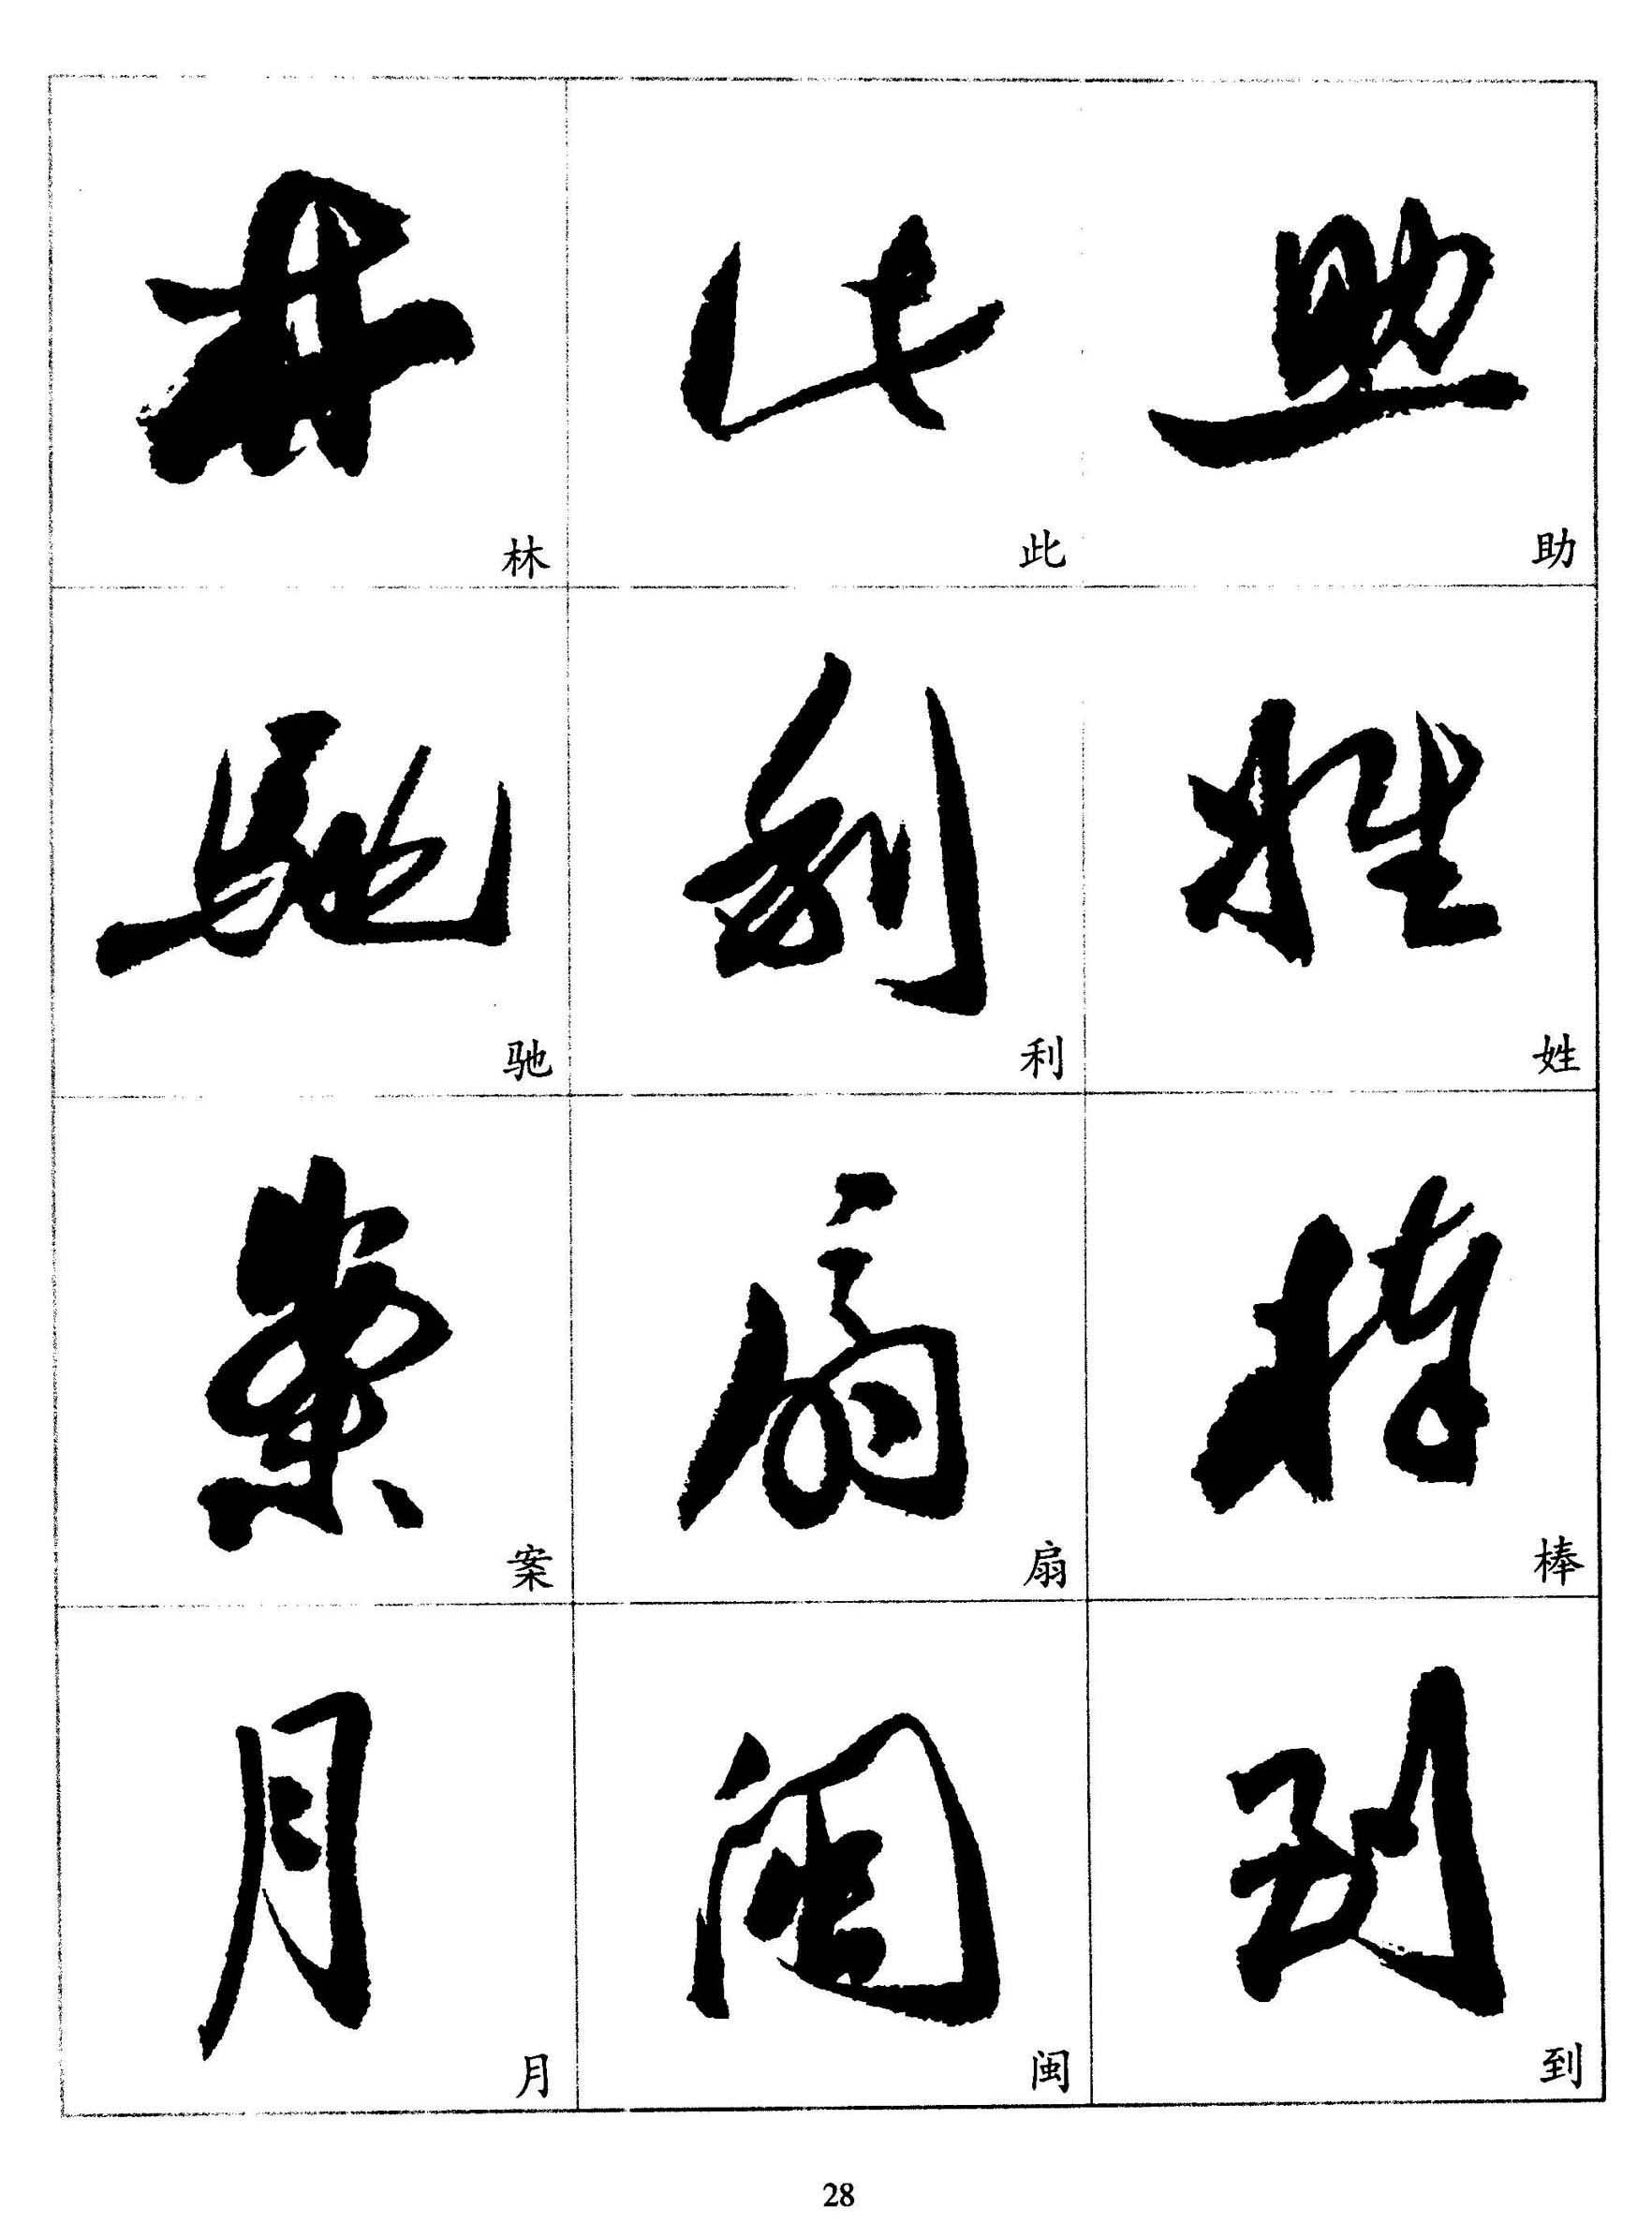 林 此 助
驰 利 姓
案 扇 棒
月 闽 到
28